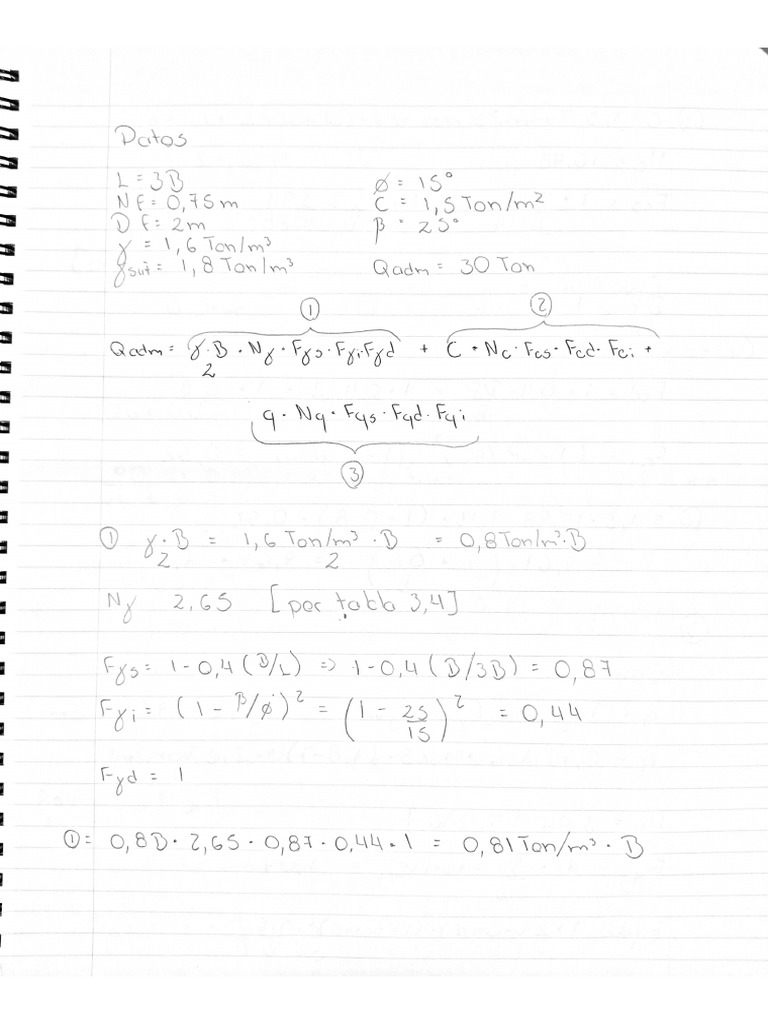 Datos
L = 3B
Nf = 0,75 m
Df = 2m
γ = 1,6 Ton/m³
γsat = 1,8 Ton/m³
Ø = 15°
C = 1,5 Ton/m²
β = 25°
Qadm = 30 Ton
① ②
Qadm = γ·B/2 · Nγ · Fγs · Fγi · Fγd + C · Nc · Fcs · Fcd · Fci +
q · Nq · Fqs · Fqd · Fqi
③
① γ·B/2 = 1,6 Ton/m³ · B/2 = 0,8 Ton/m³·B
Nγ 2,65 [por tabla 3,4]
Fγs = 1 - 0,4 (B/L) => 1 - 0,4 (B/3B) = 0,87
Fγi = (1 - β/ø)² = (1 - 25/15)² = 0,44
Fγd = 1
① = 0,8B · 2,65 · 0,87 · 0,44 · 1 = 0,81 Ton/m³ · B